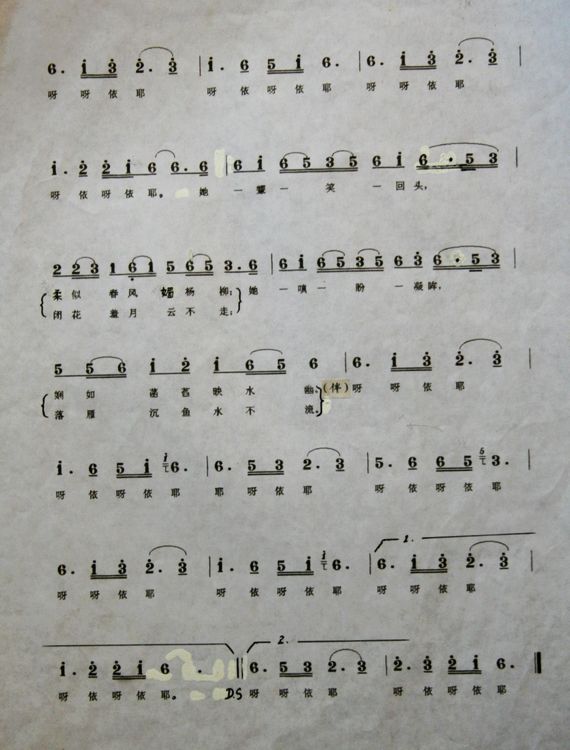 6. i̇ 3̇ 2̇. 3̇ | i̇. 6 5 i̇ 6. | 6. i̇ 3̇ 2̇. 3̇ |
呀 呀依 耶 呀 依呀依 耶 呀 呀依 耶
i̇. 2̇ 2̇ i̇ 6 6.6 | 6 i̇ 6 5 3 5 6 i̇ 6 · 5 3 |
呀 依 呀 依 耶。 她 一 颦 一 笑 一 回 头,
2 2 3 1 6̣ 1 5 6 5 3.6 | 6 i̇ 6 5 3 5 6 3 6 · 5 3 |
柔 似 春 风 媚 杨 柳; 她 一 嗔 一 盼 一 凝 眸,
闭 花 羞 月 云 不 走;
5 5 6 i̇ 2̇ i̇ 6 5 6 | 6. i̇ 3̇ 2̇. 3̇ |
娴 如 菡 萏 映 水 幽。 (伴) 呀 呀 依 耶
落 雁 沉 鱼 水 不 流。
i̇. 6 5 i̇ i̇ 6. | 6. 5 3 2. 3 | 5. 6 6 5 6 3. |
呀 依 呀 依 耶 耶 呀 依 耶 呀 依 呀 依 耶
1.
6. i̇ 3̇ 2̇. 3̇ | i̇. 6 5 i̇ i̇ 6. | 6. i̇ 3̇ 2̇. 3̇ |
呀 呀 依 耶 呀 依 呀 依 耶 呀 呀 依 耶
2.
i̇. 2̇ 2̇ i̇ 6 . || 6. 5 3 2. 3 | 2̇. 3̇ 2̇ i̇ 6. ||
呀 依 呀 依 耶。 D.S 呀 呀 依 耶 呀 依 呀 依 耶